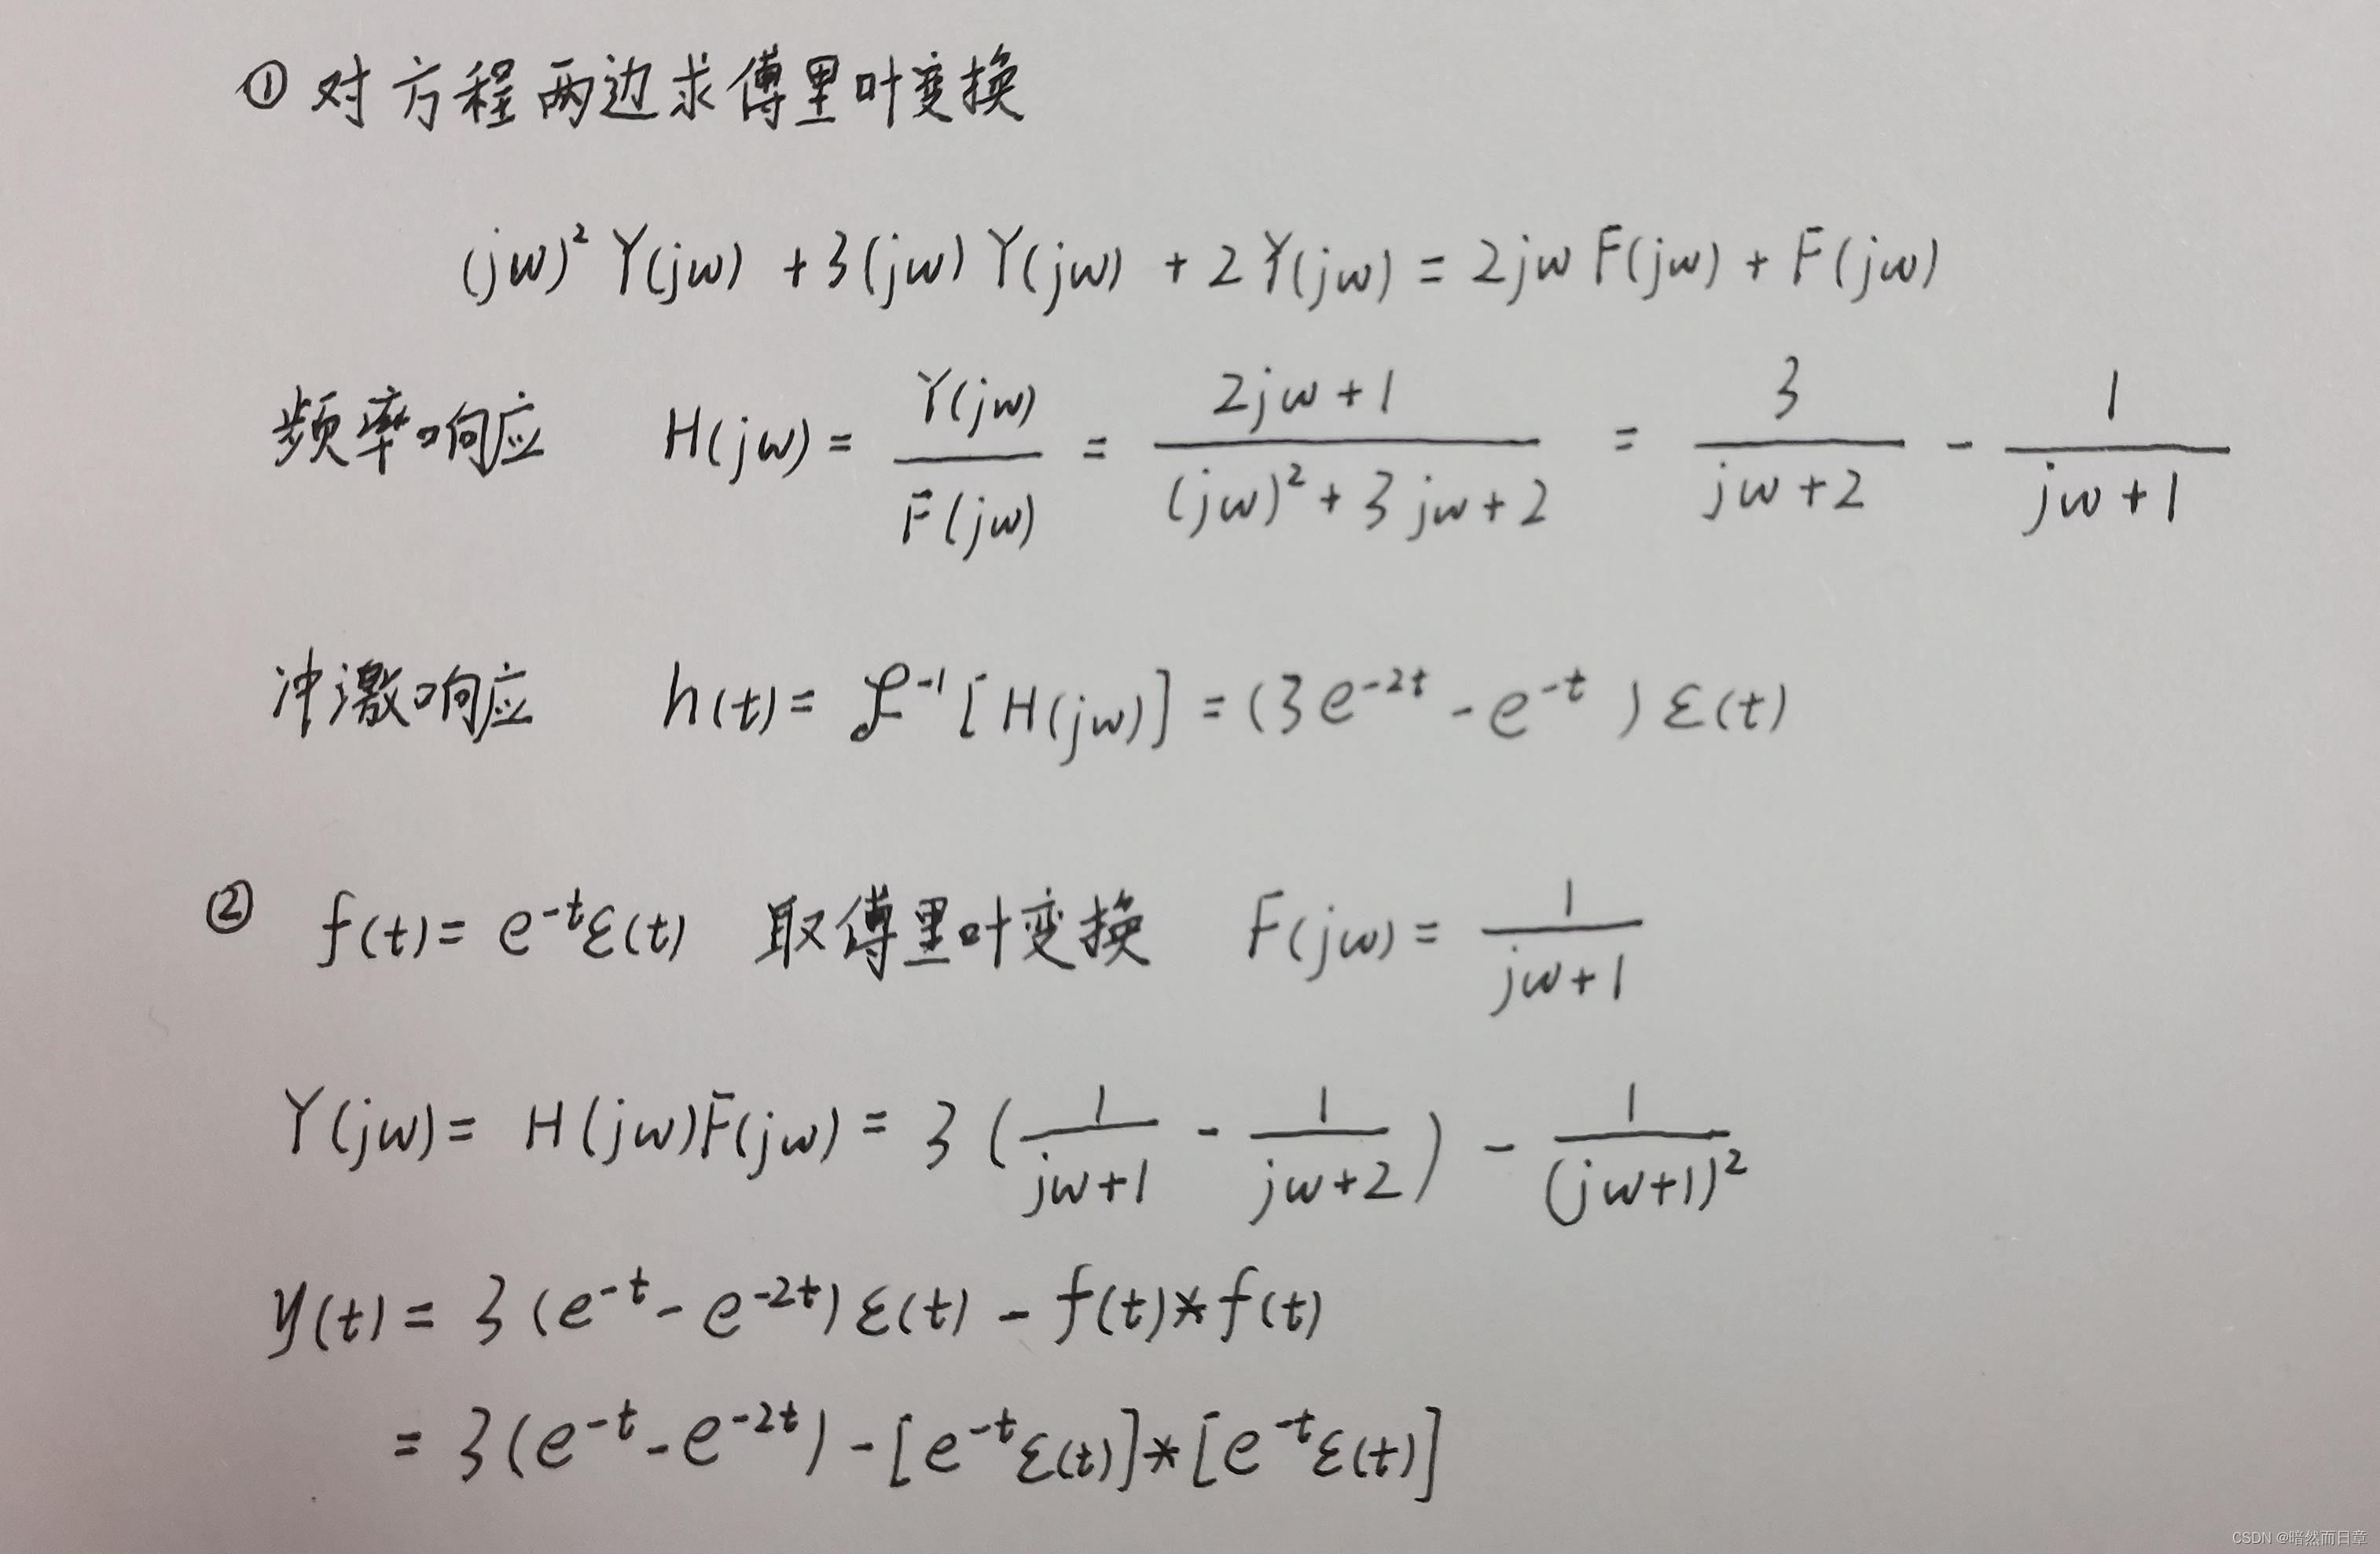 ① 对方程两边求傅里叶变换
(jω)² Y(jω) + 3(jω) Y(jω) + 2Y(jω) = 2jω F(jω) + F(jω)
频率响应 H(jω) = Y(jω)/F(jω) = (2jω+1)/((jω)²+3jω+2) = 3/(jω+2) - 1/(jω+1)
冲激响应 h(t) = ℱ⁻¹[H(jω)] = (3e^{-2t} - e^{-t})ε(t)
② f(t) = e^{-t}ε(t) 取傅里叶变换 F(jω) = 1/(jω+1)
Y(jω) = H(jω)F(jω) = 3(1/(jω+1) - 1/(jω+2)) - 1/(jω+1)²
y(t) = 3(e^{-t} - e^{-2t})ε(t) - f(t)*f(t)
= 3(e^{-t} - e^{-2t}) - [e^{-t}ε(t)]*[e^{-t}ε(t)]
CSDN @暗然而日章